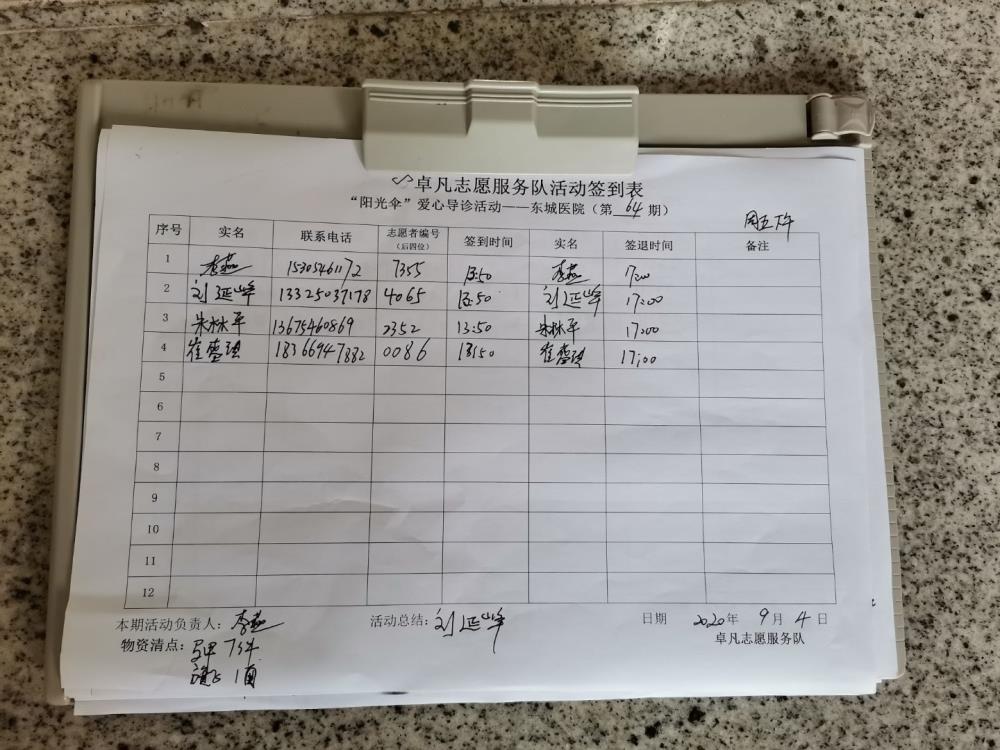 卓凡志愿服务队活动签到表
“阳光伞”爱心导诊活动——东城医院（第 64 期）
周五下午
序号 实名 联系电话 志愿者编号（后四位） 签到时间 实名 签退时间 备注
1 李燕 15305461172 7355 13:50 李燕 17:00
2 刘延峰 13325037178 4065 13:50 刘延峰 17:00
3 朱林平 13675460869 2352 13:50 朱林平 17:00
4 崔 18366947882 0086 13:50 崔 17:00
5
6
7
8
9
10
11
12
本期活动负责人：李燕 活动总结：刘延峰 日期 2020年 9月 4日
物资清点：马甲 7件 卓凡志愿服务队
1面